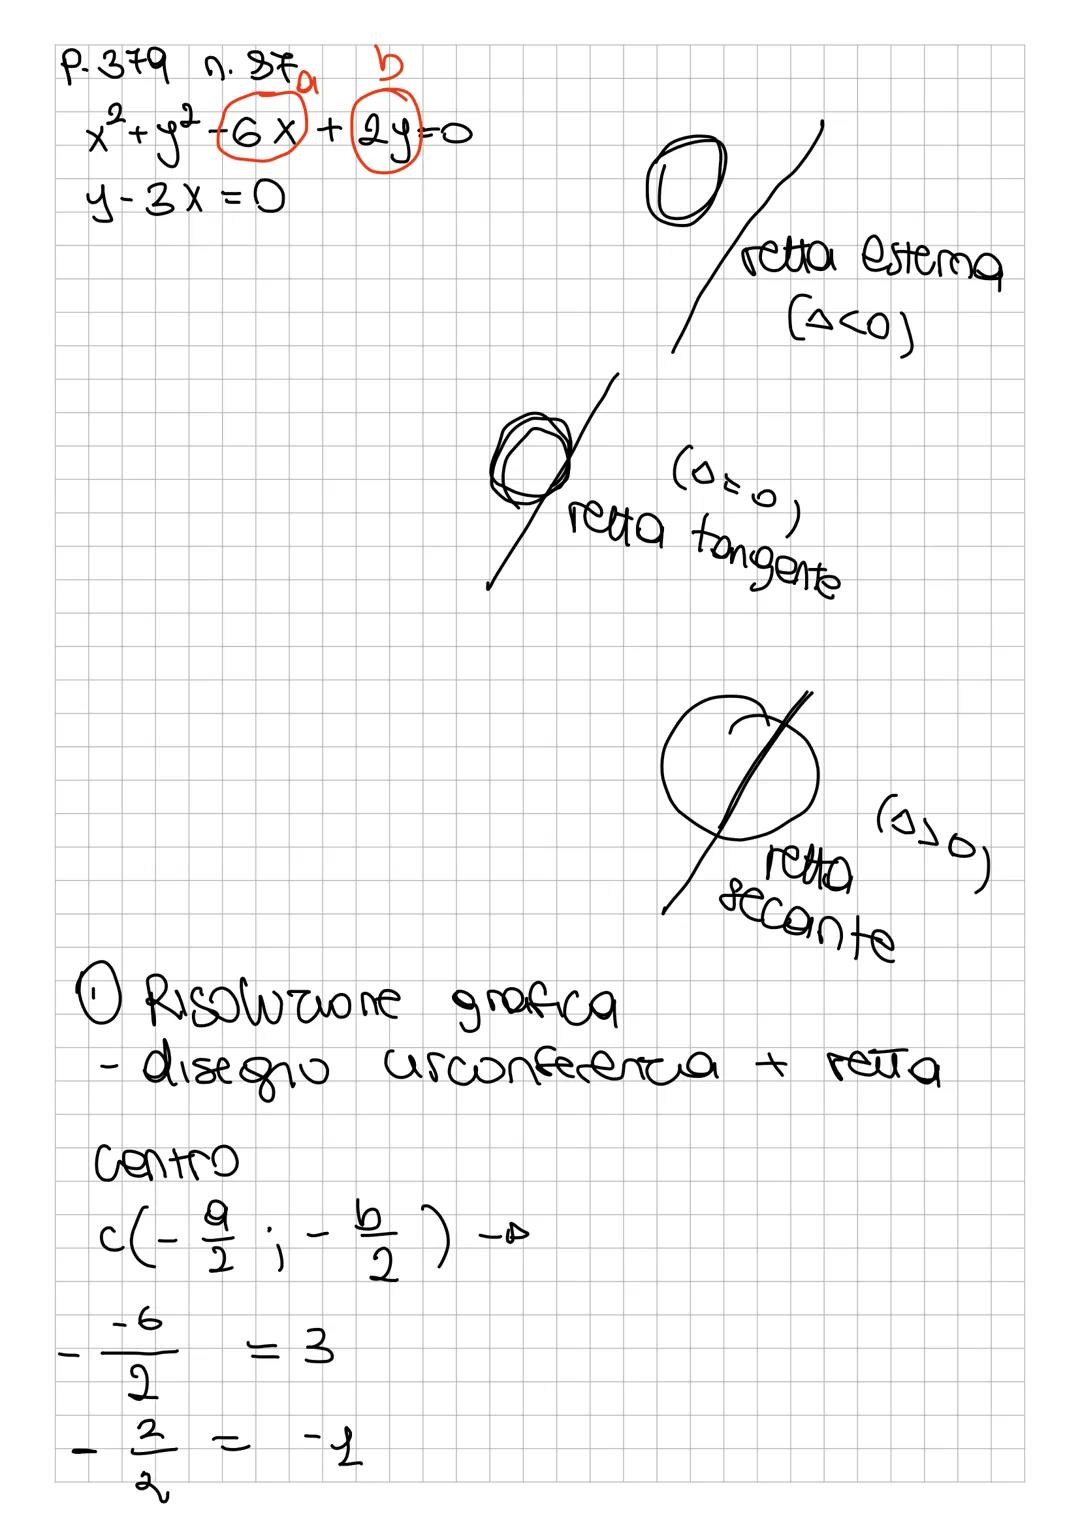 P. 379 n. 37
a b
x²+y²-6x+2y=0
y-3x=0
retta esterna
(Δ<0)
(Δ=0)
retta tangente
(Δ>0)
retta
secante
① Risoluzione grafica
- disegno circonferenza + retta
centro
c(-a/2 ; -b/2) →
- -6/2 = 3
- 2/2 = -1